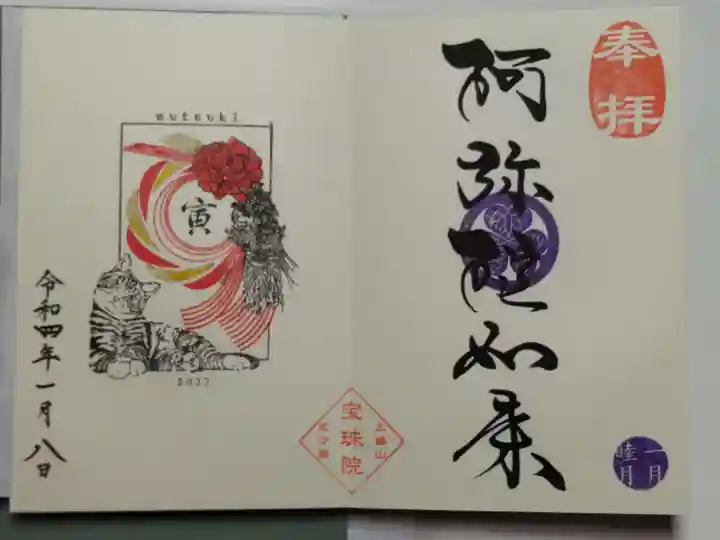 奉拝
阿弥陀如来
一月
睦月
宝珠院
mutsuki
寅
2022
令和四年一月八日